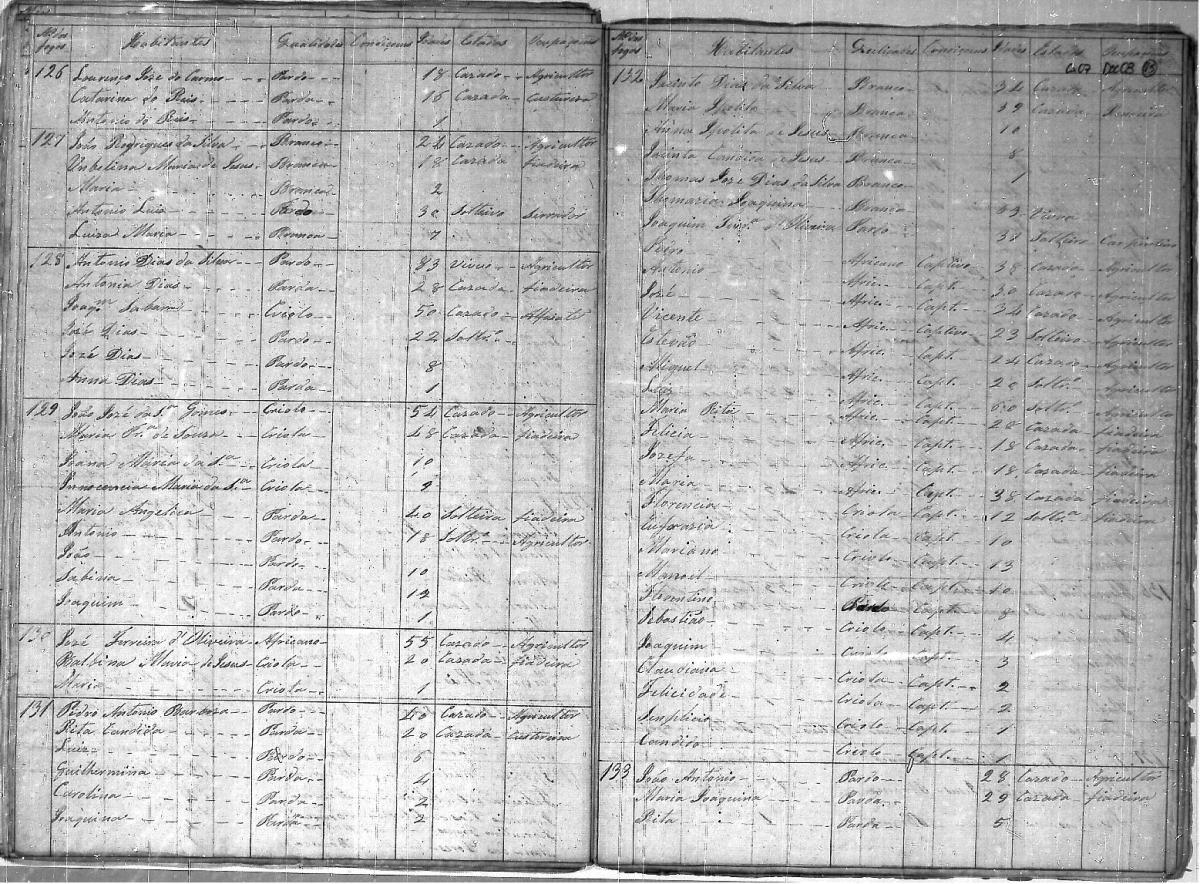 Nº dos fogos Habitantes Qualidades Condiçoens Idades Estados Ocupaçoens
126 Lourenço Joze do Carmo Pardo 18 Cazado Agricultor
Catarina do Reis Parda 16 Cazada Custureira
Antonio do Reis Pardo 1
127 João Rodrigues da Silva Branco 24 Cazado Agricultor
Unbelina Maria de Jesus Branca 18 Cazada fiadeira
Maria Branca 2
Antonio Luis Pardo 30 Solteiro Serrador
Luiza Maria Branca 7
128 Antonio Dias da Silva Pardo 83 Viuvo Agricultor
Antonia Dias Parda 28 Cazada fiadeira
Joaqm Sabará Criolo 50 Cazado Alfaiate
José Dias Pardo 22 Soltro
José Dias Pardo 8
Anna Dias Parda 1
129 João José da Sa Gomes Criolo 54 Cazado Agricultor
Maria Fra de Souza Criola 48 Cazada fiadeira
Joana Maria da Sa Criola 10
Innocencia Maria da Sa Criola 9
Maria Angelica Parda 40 Solteira fiadeira
Antonio Pardo 18 Soltro Agricultor
João Pardo 10
Sabina Parda 12
Joaquim Pardo 1
130 José Ferreira d'Oliveira Africano 55 Cazado Agricultor
Balbina Maria de Jesus Criola 20 Cazada fiadeira
Maria Criola 1
131 Pedro Antonio Barboza Pardo 40 Cazado Agricultor
Rita Candida Parda 20 Cazada Custureira
Luiz Pardo 6
Guilhermina Parda 4
Carolina Parda 2
Joaquina Parda 2
Nº dos fogos Habitantes Qualidades Condiçoens Idades Estados Ocupaçoens
Cx07 Doc 08 03
132 Jacinto Dias da Silva Branco 34 Cazado Agricultor
Maria Ipolita Branca 39 Cazada
Anna Ipolita de Jesus Branca 10
Jacinta Candida de Jesus Branca 8
Thomas Joze Dias da Silva Branco 1
Joaquina Branca 53 Viuva
Joaquim Ferra d'Oliveira Pardo 33 Solteiro Carpinteiro
Pedro Africano Captivo 38 Cazado Agricultor
Antonio Afric. Capt. 30 Cazado Agricultor
José Afric. Capt. 34 Cazado Agricultor
Vicente Afric. Captivo 23 Solteiro Agricultor
Estevão Afric. Capt. 24 Cazado Agricultor
Miguel Afric. Capt. 20 Soltro Agricultor
Afric. Capt. 60 Soltro Agricultor
Maria Rita Afric. Capt. 28 Cazada fiadeira
Felicia Afric. Capt. 18 Cazada fiadeira
Jozefa Afric. Capt. 18 Cazada fiadeira
Maria Afric. Capt. 38 Cazada fiadeira
Florencia Criola Capt. 12 Soltra fiadeira
Eufrazia Criola Capt. 10
Mariano Criolo Capt. 13
Manoel Criolo Capt. 10
Florentino Pardo Capt. 8
Sebastião Criolo Capt. 4
Joaquim Criolo Capt. 3
Claudiana Criola Capt. 2
Felicidade Criola Capt. 2
Simplicio Criolo Capt. 1
Candido Criolo Capt. 1
133 João Antonio Pardo 28 Cazado Agricultor
Maria Joaquina Parda 29 Cazada fiadeira
Rita Parda 5